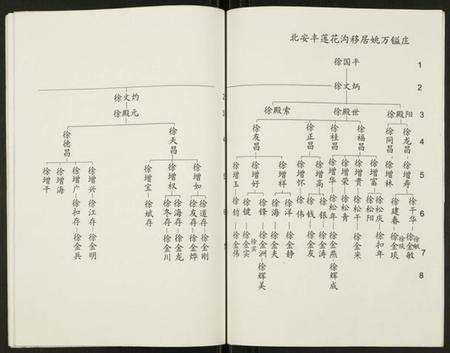 北安丰莲花沟移居姚万鎰庄
徐国平 1
徐文炳 2
徐殿阳 徐殿世 徐殿索 3
徐龙昌 徐同昌 徐福昌 徐桂昌 徐正昌 徐友昌 4
徐增寿 徐增林 徐增富 徐增贵 徐增荣 徐增华 徐增高 徐增怀 徐增祥 徐增好 徐增玉 5
徐千华 徐建春 徐松庆 徐松阳 徐松千 徐松青 徐松年 徐银 徐钱 徐伟 徐洋 徐海 徐锋 徐键 6
徐金敏 徐金琰 徐和年 徐金来 徐金燕 徐金涛 徐金友 徐金静 徐金夫 徐金洲 徐金实 徐金伟 7
徐辉成 徐辉美 8
徐文灼 2
徐殿元 3
徐天昌 徐德昌 4
徐增如 徐增权 徐增宝 徐增兴 徐增广 徐增海 徐增干 5
徐道存 徐友存 徐海存 徐冬存 徐斌存 徐江存 徐和存 6
徐金刚 徐金烨 徐金龙 徐金川 徐金明 徐金兵